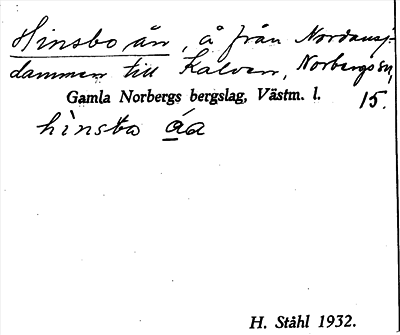 Hinsbo ån, å från Nordansj-
dammen till Kalven, Norbergs sn,
Gamla Norbergs bergslag, Västm. l. 15.
hìnsbo áa
H. Ståhl 1932.